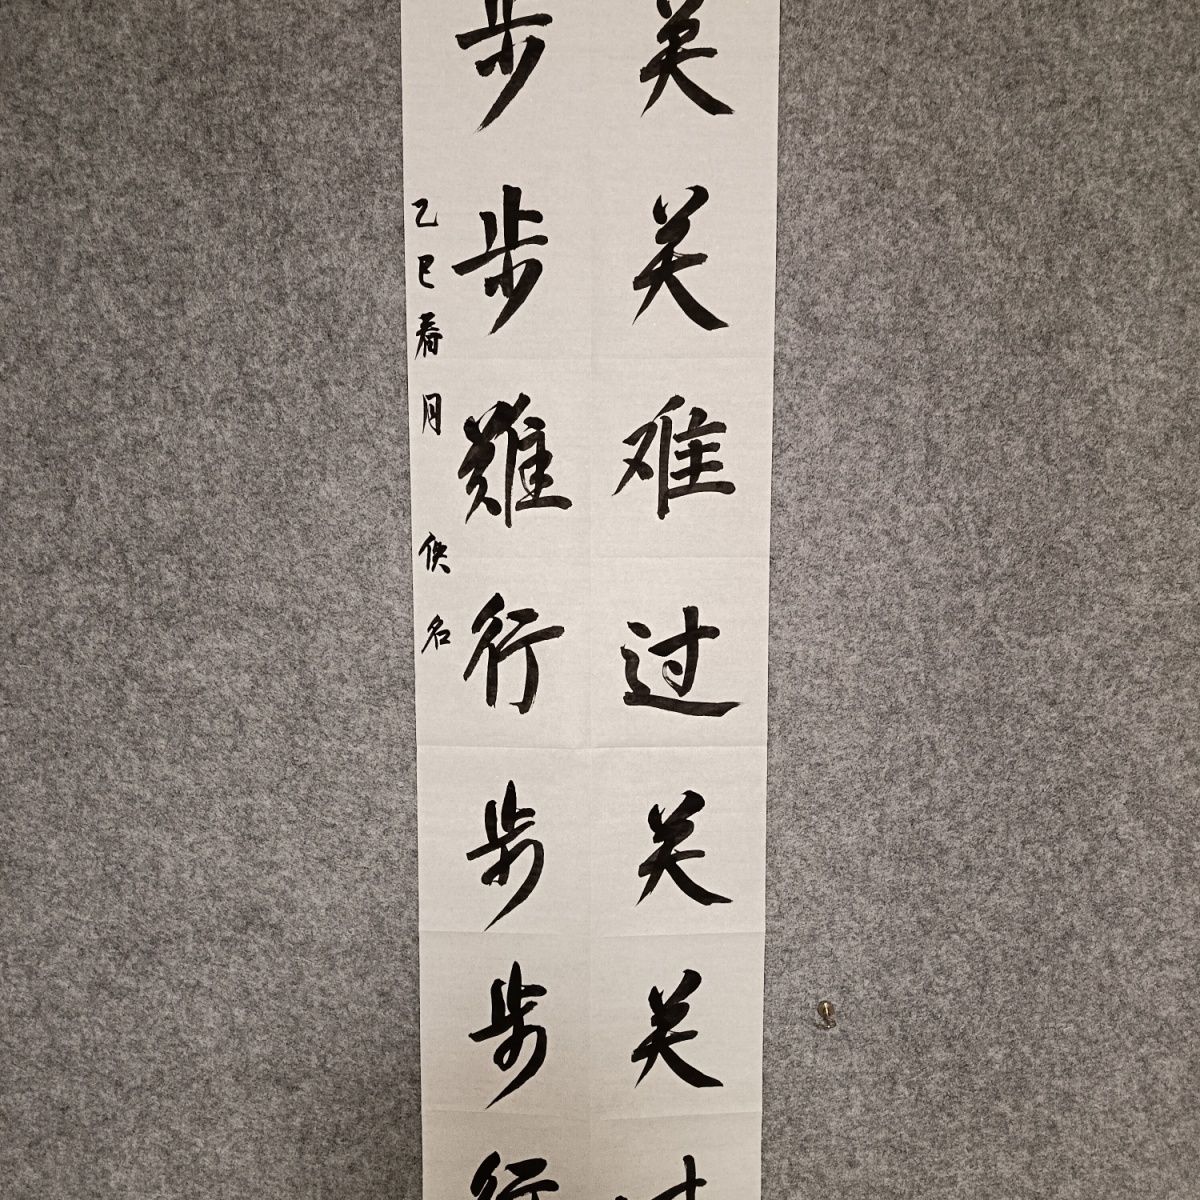 关关难过关关过
步步難行步步行
乙巳春月 佚名